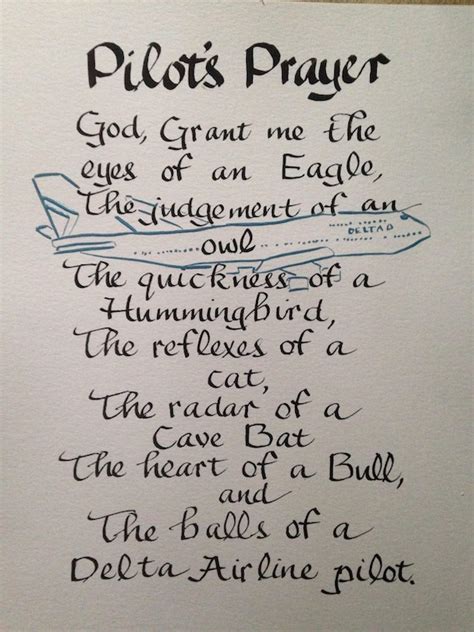 Pilot's Prayer
God, Grant me the
eyes of an Eagle,
The judgement of an
DELTA
owl
The quickness of a
Hummingbird,
The reflexes of a
cat,
The radar of a
Cave Bat
The heart of a Bull,
and
The balls of a
Delta Airline pilot.